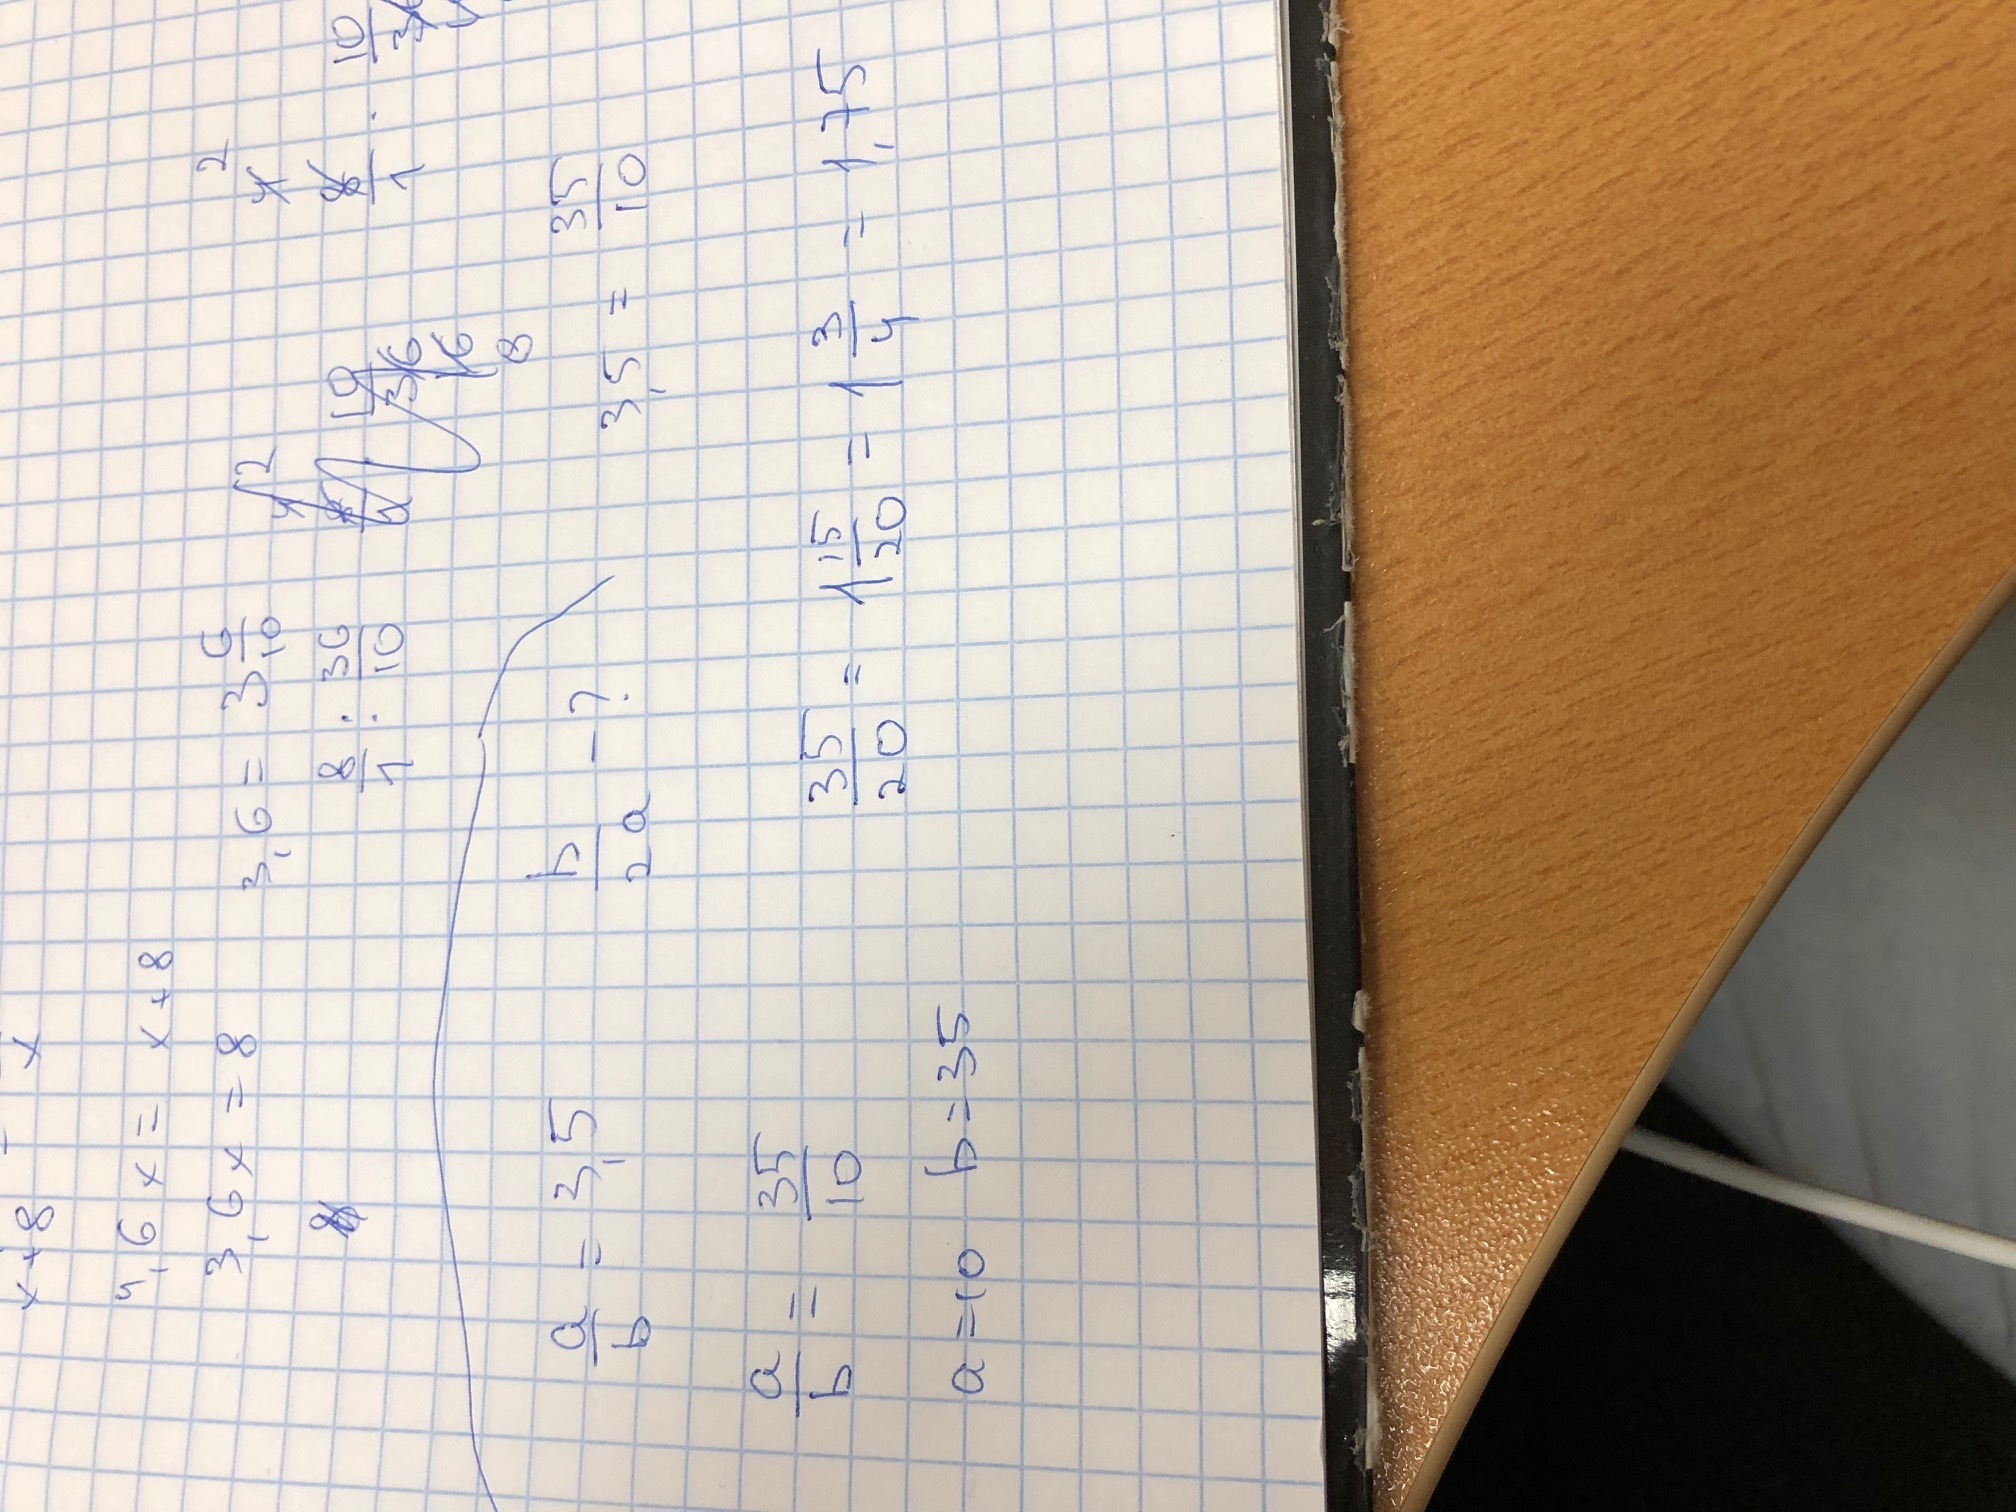 x+8 x
4,6x = x+8
3,6x = 8
3,6 = 3 6/10
8/1 : 36/10
8/1 · 10/36
a/b = 3,5
b/2a - ?
3,5 = 35/10
a/b = 35/10
35/20 = 1 15/20 = 1 3/4 = 1,75
a = 10 b = 35